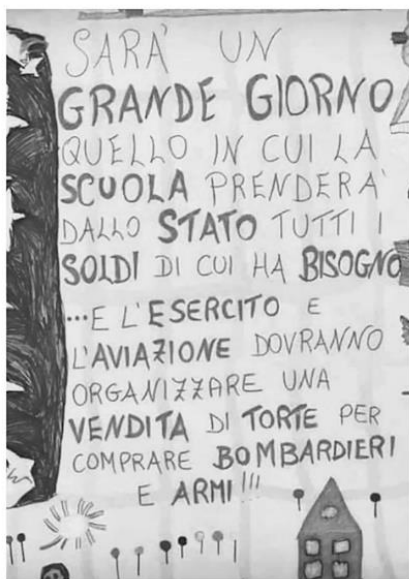 SARÀ UN
GRANDE GIORNO
QUELLO IN CUI LA
SCUOLA PRENDERA'
DALLO STATO TUTTI I
SOLDI DI CUI HA BISOGNO
...E L'ESERCITO E
L'AVIAZIONE DOVRANNO
ORGANIZZARE UNA
VENDITA DI TORTE PER
COMPRARE BOMBARDIERI
E ARMI!!!